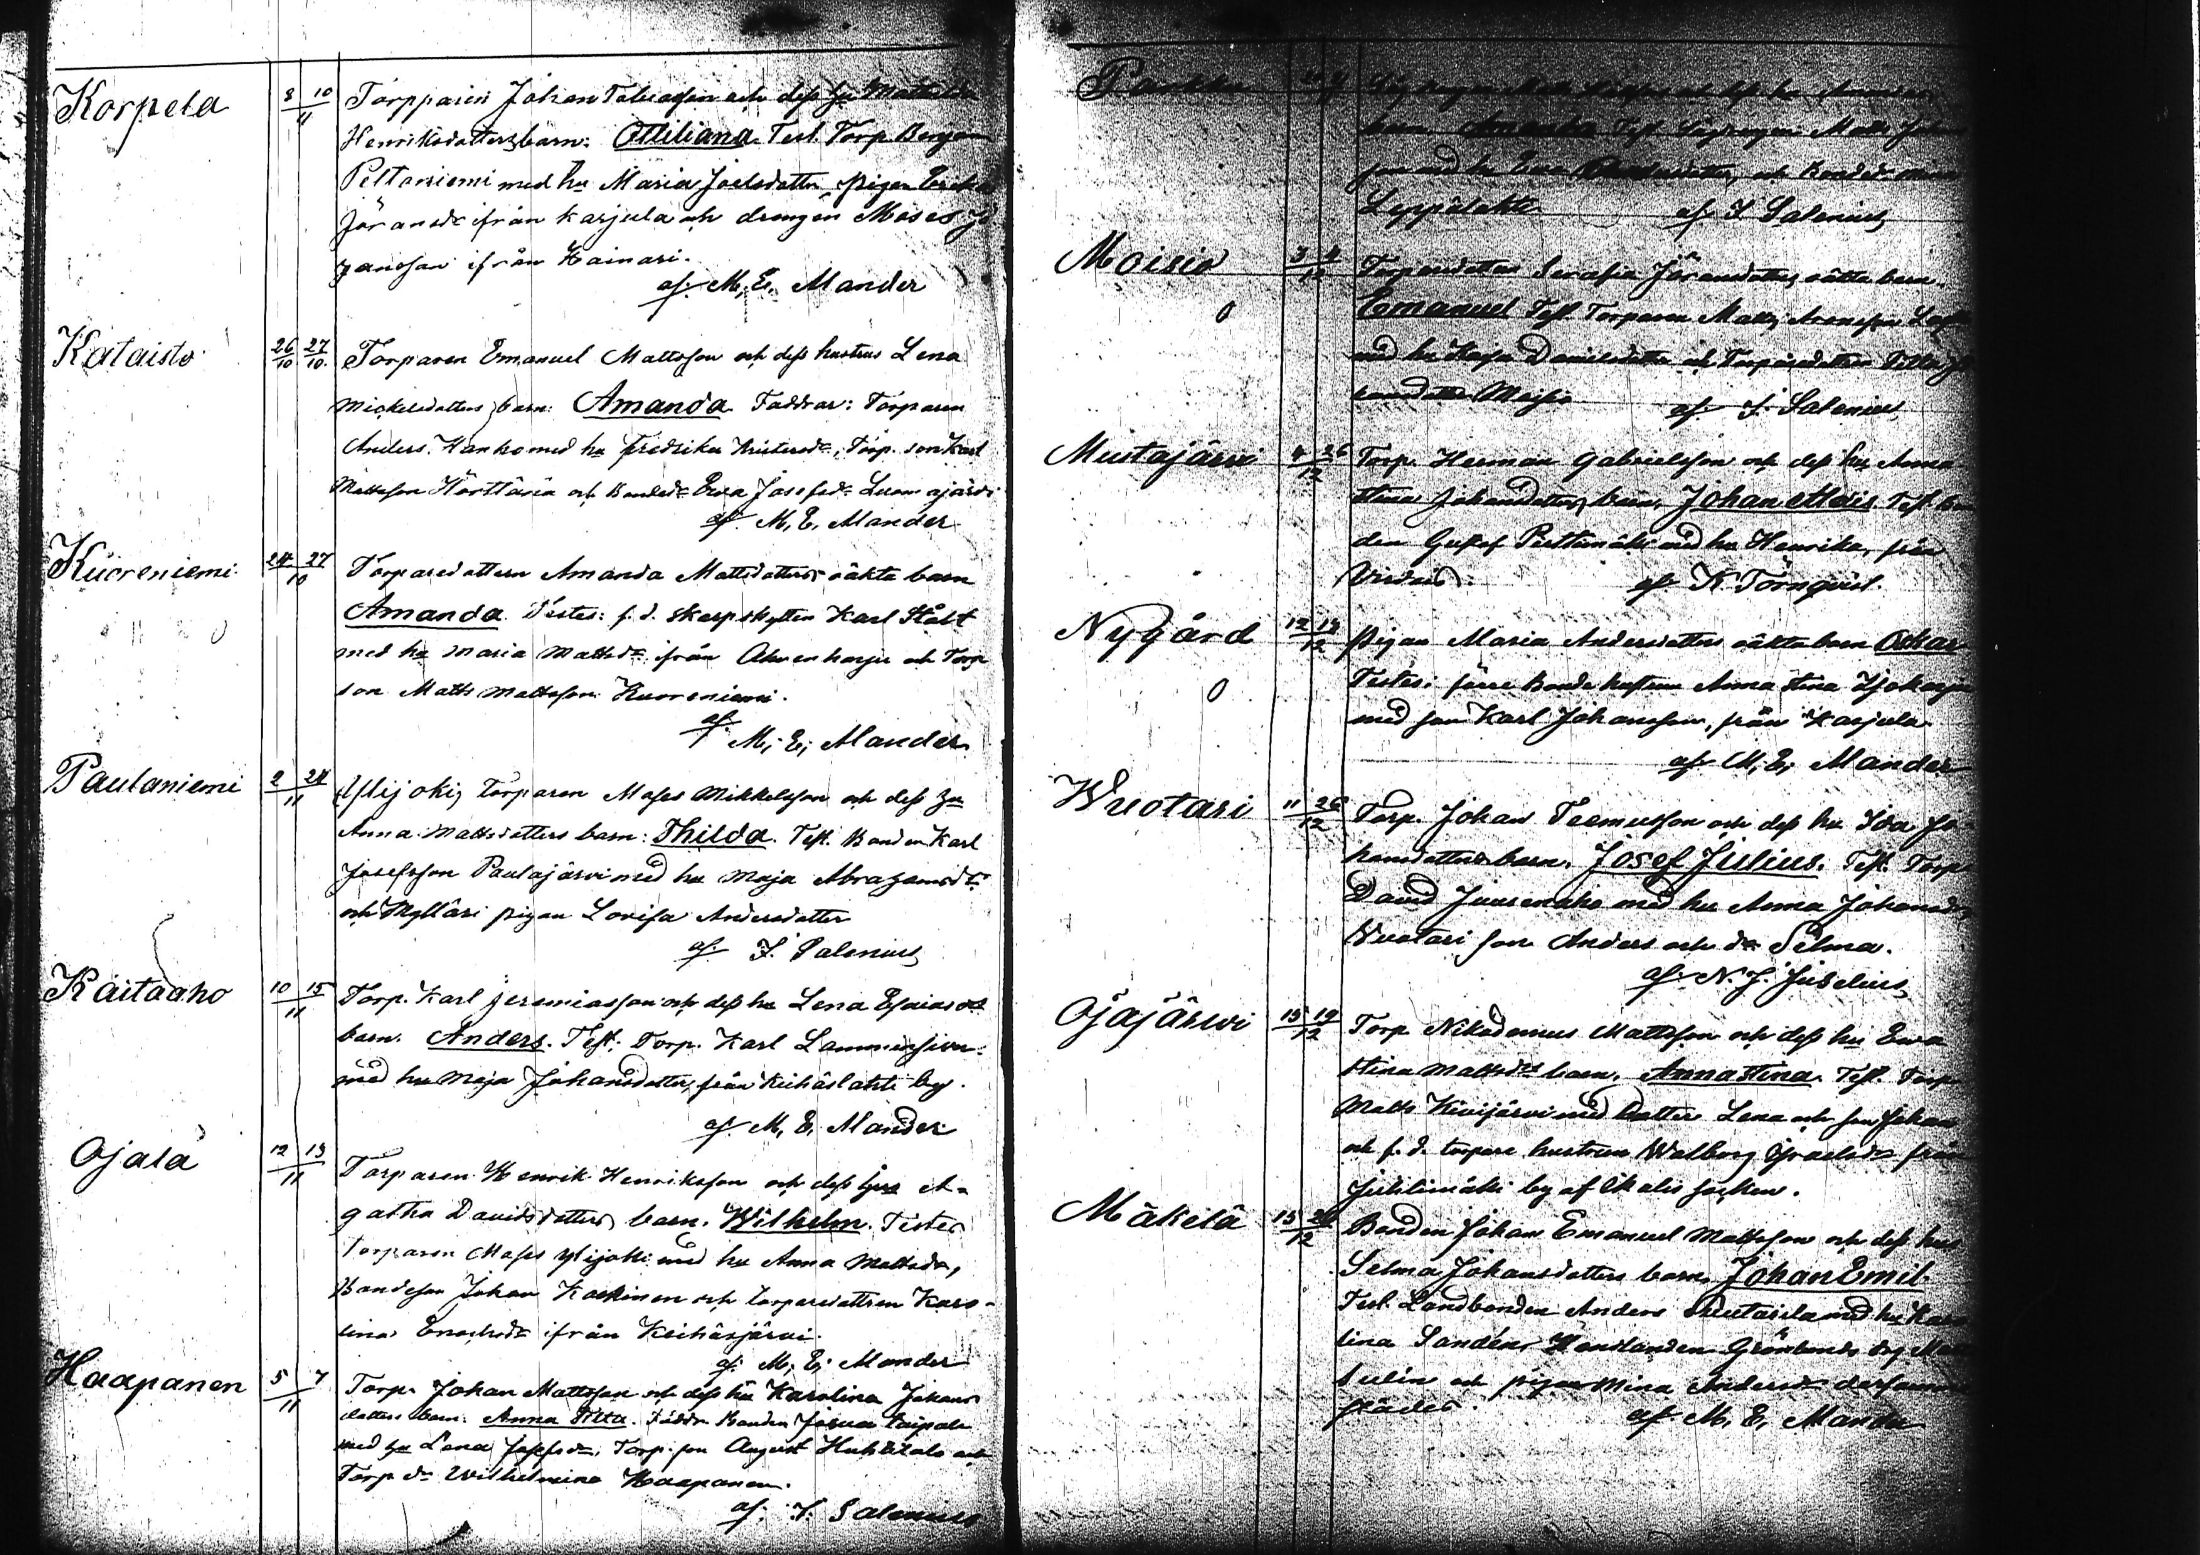 Korpela 8 10/11 Torpparen Johan Tobiasson och dess hu Mathilda
Henriksdotters barn: Ottiliana. Test. Torp. Benjam
Peltoniemi med hu Maria Joelsdotter, pigan Erika
Göransdr ifrån Karjula och drengen Moses Jo
hansson ifrån Kainari.
af. M. E. Mander
Kataisto 26/10 27/10 Torparen Emanuel Mattsson och dess hustrus Lena
Mickelsdotters barn: Amanda. Faddrar: Torparen
Anders Hanko med hu Fredrika Kristersdr, Torp. son Karl
Mattsson Hörttänä och Bondedr Ewa Josefsdr Luomajärvi
af M. E. Mander
Kuoreniemi 24 27/10 Torparedottern Amanda Mattsdotters oäkta barn
Amanda. Testes: f. d. skarpskytten Karl Stålt
med hu Maria Mattsdr ifrån Ahvenharju och Torp
son Matts Mattsson Kuoreniemi.
af
M. E. Mander
Paulaniemi 2 24/11 Ylijoki, torparen Moses Mikkelsson och dess hu
Anna Mattsdotters barn: Thilda. Test. Bonden Karl
Josefsson Paulajärvi med hu Maja Abrahamsdr
och Mylläri pigan Lovisa Andersdotter
af J. Salenius
Kaitaaho 10 15/11 Torp. Karl Jeremiasson och dess hu Lena Esaiasdrs
barn. Anders. Test. Torp. Karl Lammensivu
med hu Maja Johansdotter, från Keihäslahti by.
af. M. E. Mander
Ojala 12 13/11 Torparen Henrik Henriksson och dess hus A-
gatha Davidsdotters barn. Wilhelm. Testes
torparen Moses Ylijoki med hu Anna Mattsdr,
Bondeson Johan Koskinen och torparedottren Karo-
lina Enochsdr ifrån Keihäsjärvi.
af. M. E. Mander
Haapanen 5 7/11 Torp. Johan Mattsson och dess hu Karolina Johans
dotters barn. Anna Tilta. Faddr. Bonden Josua Taipale
med hu Lena Josefsdr, Torp. son August Huhtitalo och
Torp dr Wilhelmina Haapanen.
af. J. Salenius
Parkku
barn. Amanda Test. Matts Johans
son med hu Ewa
Leppälahti af J Salenius
Moisio 3 4/12 Torparedottren Serafia Göransdotters oäkta barn.
0 Emanuel Test Torparen Matts Aronsson
med hu Kaisa Danielsdotter och Torparedottren Tilta Jo
hansdotter Moisio af J. Salenius
Mustajärvi 4 26/12 Torp. Herman Gabrielsson och dess hu Anna
Stina Johansdotters barn, Johan Alois. Test. bon
den Gustaf Perttimäki med hu Henrika, från
Virdois. af K. Törnqvist.
Nygård 12 13/12 Pigan Maria Andersdotters oäkta barn Oskar
0 Testes: förre Bonde hustrun Anna Stina
med son Karl Johansson, från Karjula
af M. E. Mander
Wuotari 11 26/12 Torp. Johan Teemusson och dess hu Ida Jo
hansdotters barn. Josef Julius. Test. Torp.
David Juurenaho med hu Anna Johansdr
Wuotari son Anders och dr Selma.
af N. J. Jusélius
Ojajärwi 15 19/12 Torp Nikodemus Mattsson och dess hu Ewa
Stina Mattsdrs barn. Anna Stina. Test. Torp.
Matts Kivijärvi med dotter Lena och son Johan
och f. d. torpare hustrun Walborg Israelsdr från
Juhtimäki by af Ikalis socken.
Mäkelä 15 26/12 Bonden Johan Emanuel Mattsson och dess hus
Selma Johansdotters barn, Johan Emil
Test. Landbonden Anders med hu Karo
lina Sandén, Grönlunds
och pigan Mina Andersdr dersamma
städes.
af M. E. Mander